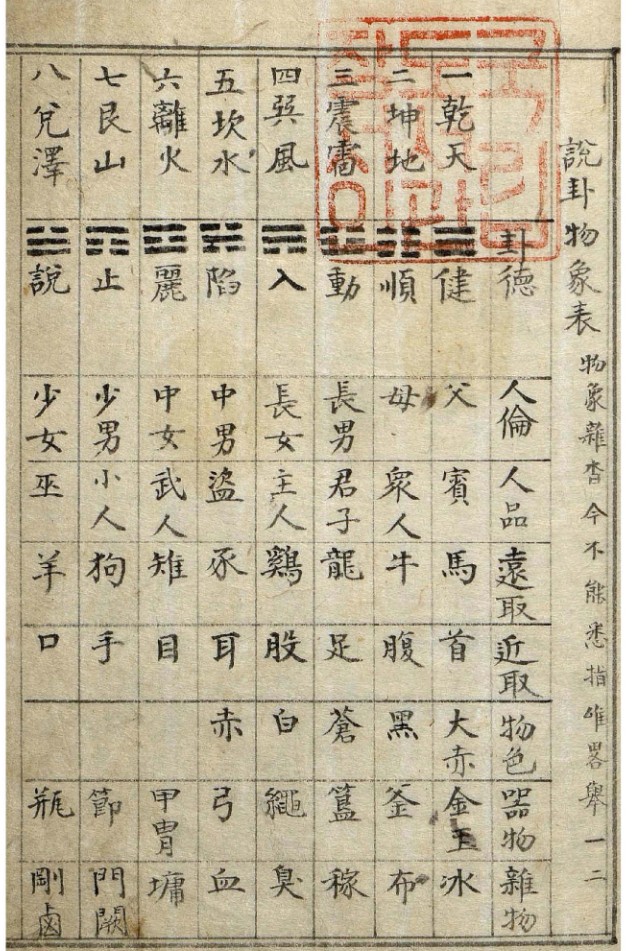 說卦物象表 物象雜沓今不能悉指唯畧舉一二
卦德 人倫 人品 遠取 近取 物色 器物 雜物
一乾天 ☰ 健 父 賓 馬 首 大赤 金玉 冰
二坤地 ☷ 順 母 衆人 牛 腹 黑 釜 布
三震雷 ☳ 動 長男 君子 龍 足 蒼 簋 稼
四巽風 ☴ 入 長女 主人 鷄 股 白 繩 臭
五坎水 ☵ 陷 中男 盜 豕 耳 赤 弓 血
六離火 ☲ 麗 中女 武人 雉 目 甲胄 墉
七艮山 ☶ 止 少男 小人 狗 手 節 門闕
八兌澤 ☱ 說 少女 巫 羊 口 甁 剛鹵